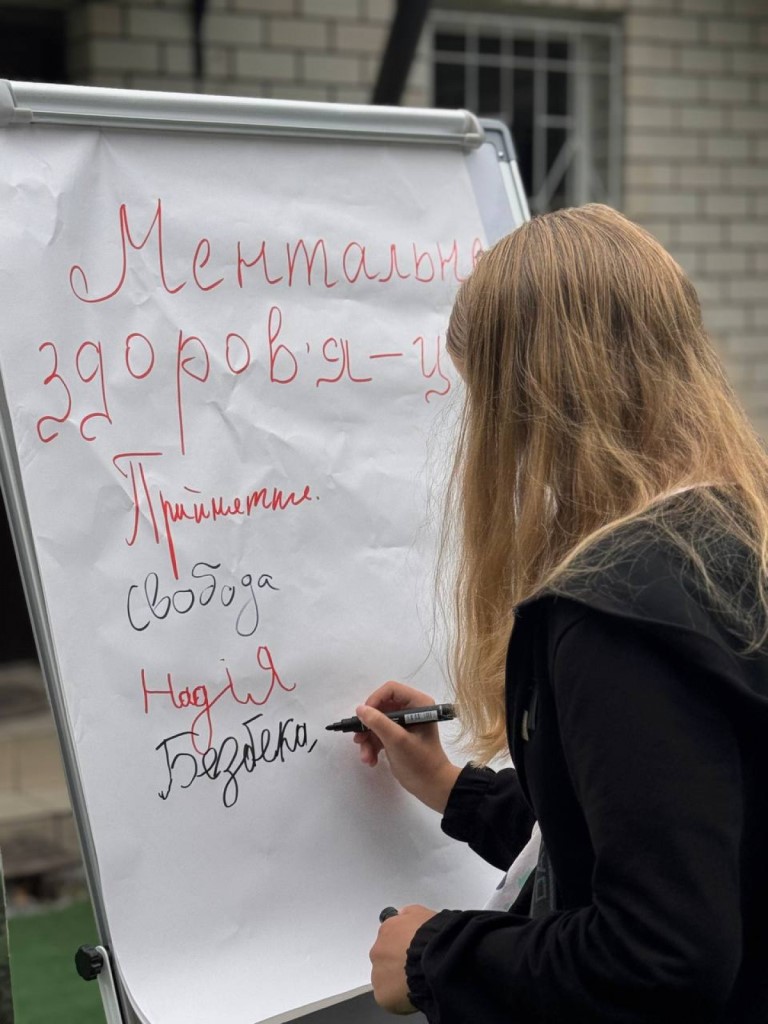 Ментальне
здоров'я – ц
Прийняття.
свобода
НадіЯ
Безбека,